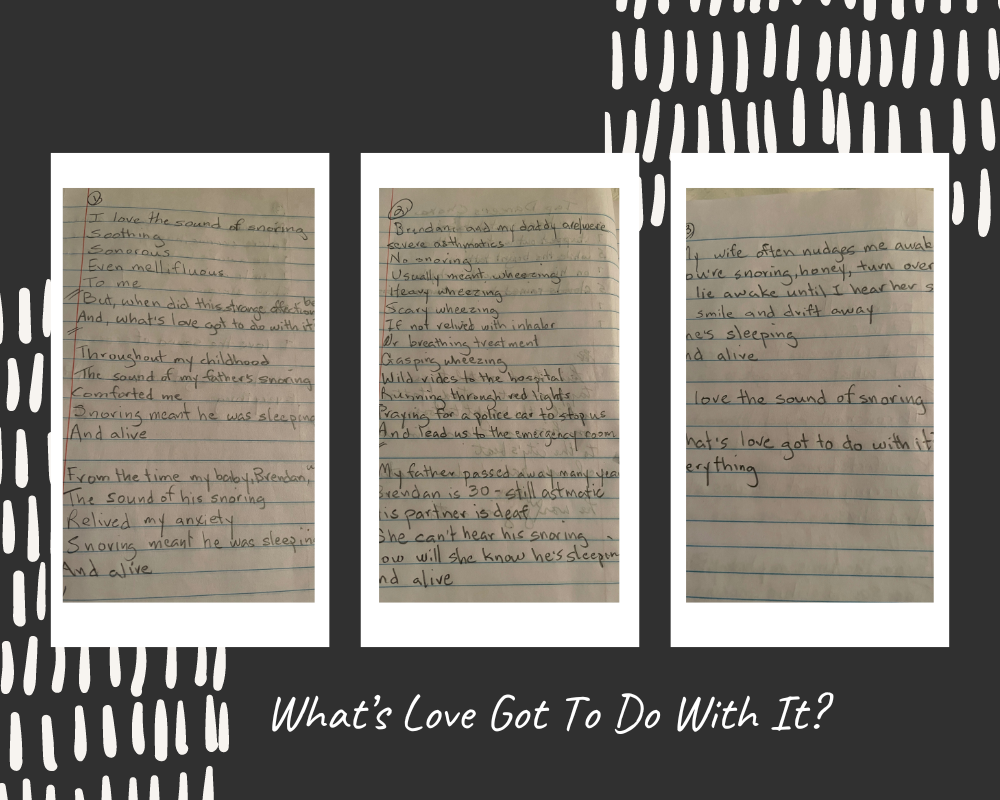 1
I love the sound of snoring
Soothing
Sonorous
Even mellifluous
To me
But, when did this strange affection be
And, what's love got to do with it?
Throughout my childhood
The sound of my father's snoring
Comforted me
Snoring meant he was sleeping
And alive
From the time my baby, Brendan,
The sound of his snoring
Relived my anxiety
Snoring meant he was sleepin
And alive
2
Brendan and my daddy are/were
severe asthmatics
No snoring
Usually meant wheezing
Heavy wheezing
Scary wheezing
If not relived with inhaler
Or breathing treatment
Gasping wheezing
Wild rides to the hospital
Running through red lights
Praying for a police car to stop us
And lead us to the emergency room
My father passed away many yea
Brendan is 30 - still astmatic
is partner is deaf
She can't hear his snoring
ow will she know he's sleepin
nd alive
3
My wife often nudges me awak
ou're snoring, honey, turn over
lie awake until I hear her s
smile and drift away
he's sleeping
nd alive
love the sound of snoring
hat's love got to do with it
erything
What's Love Got To Do With It?